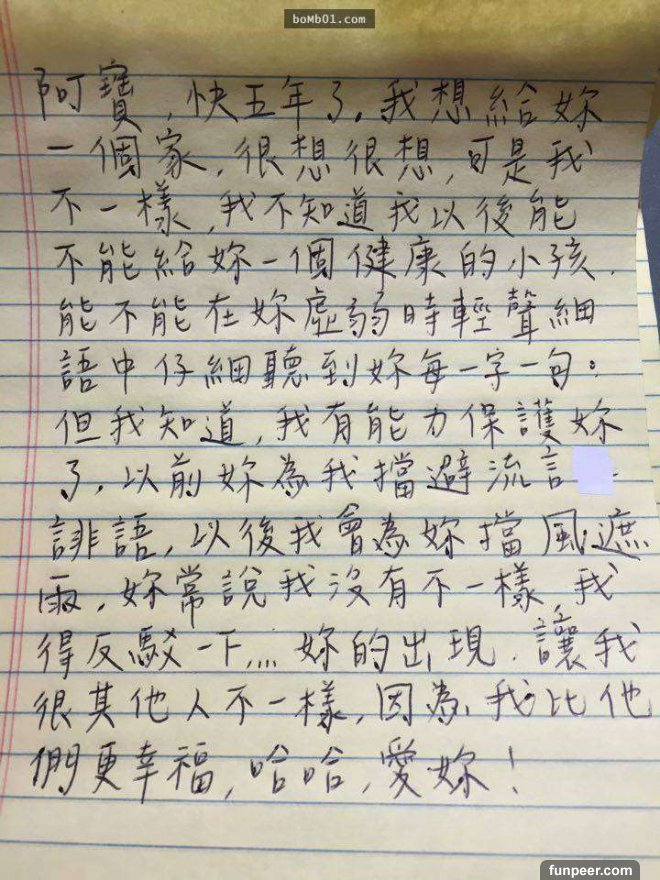 boMb01.com
阿寶，快五年了。我想給妳
一個家，很想很想，可是我
不一樣，我不知道我以後能
不能給妳一個健康的小孩，
能不能在妳虛弱時輕聲細
語中仔細聽到妳每一字一句。
但我知道，我有能力保護妳
了，以前妳為我擋避流言
誹語，以後我會為妳擋風遮
雨，妳常說我沒有不一樣，我
得反駁一下… 妳的出現，讓我
很其他人不一樣，因為，我比他
們更幸福，哈哈，愛妳！
funpeer.com